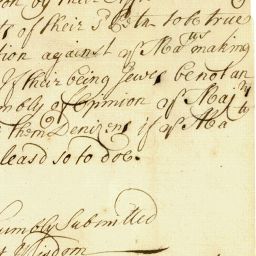 of their P to be true
tion against yͤ Maᵗⁱᵉˢ making
If their being Jewes be not an
mbly of Opinion yͤ Majᵗʸ
them Denizens if yͤ Maᵗʸ
leasd so to doe.
umbly Submitted
Wisdom